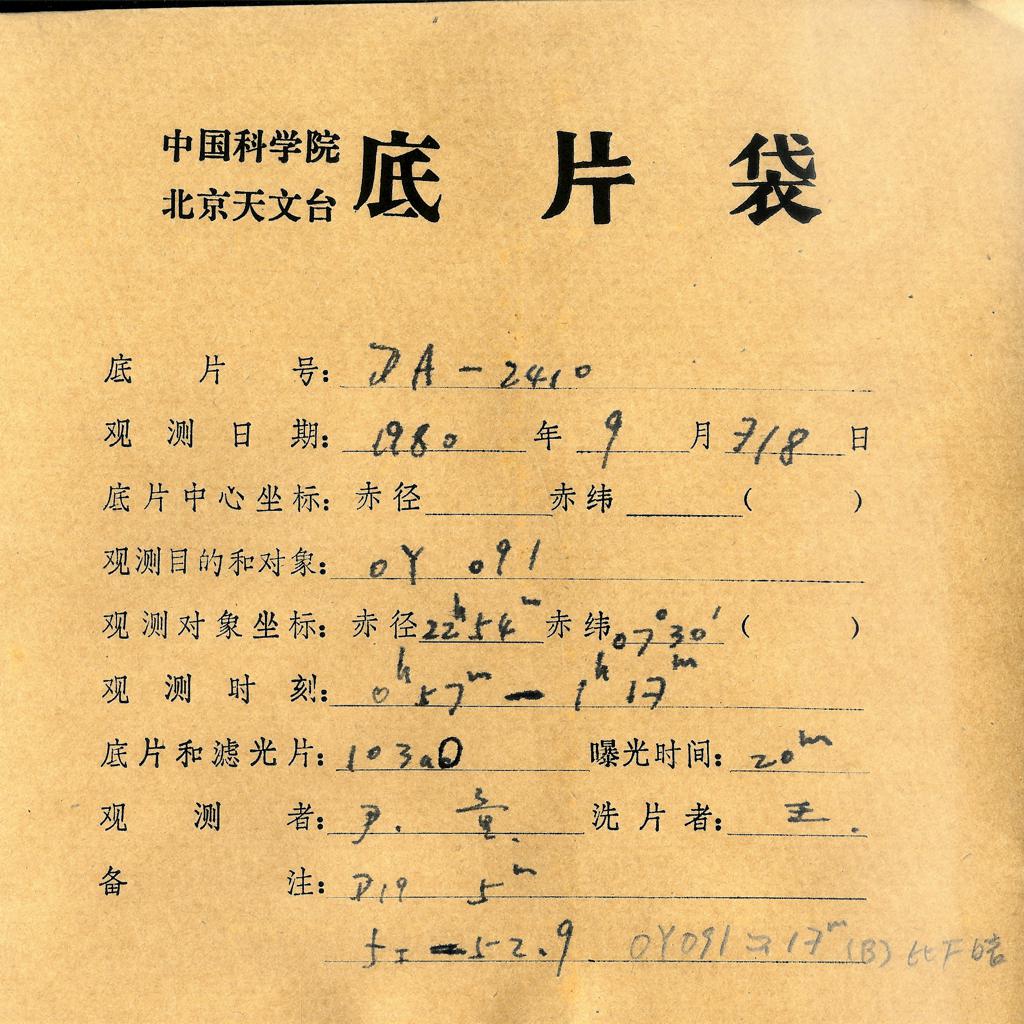 中国科学院
北京天文台 底片袋
底片号: DA-2410
观测日期: 1980 年 9 月 718 日
底片中心坐标: 赤径 赤纬 ( )
观测目的和对象: OY 091
观测对象坐标: 赤径 22h54m 赤纬 07°30′ ( )
观测时刻: 0h57m — 1h17m
底片和滤光片: 103aO 曝光时间: 20m
观测者: 洗片者: 王.
备注: D19 5m
52.9 OY091 17m (B)